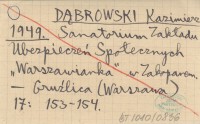 DĄBROWSKI Kazimierz
1949. Sanatorium Zakładu
Ubezpieczeń Społecznych
„Warszawianka" w Zakopanem.
— Gruźlica (Warszawa)
17: 153-154.
bJ 1010/0836